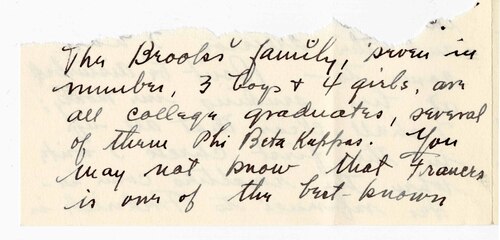 The Brooks' family, seven in
number, 3 boys + 4 girls, are
all college graduates, several
of them Phi Beta Kappas. You
may not know that Frances
is one of the best-known